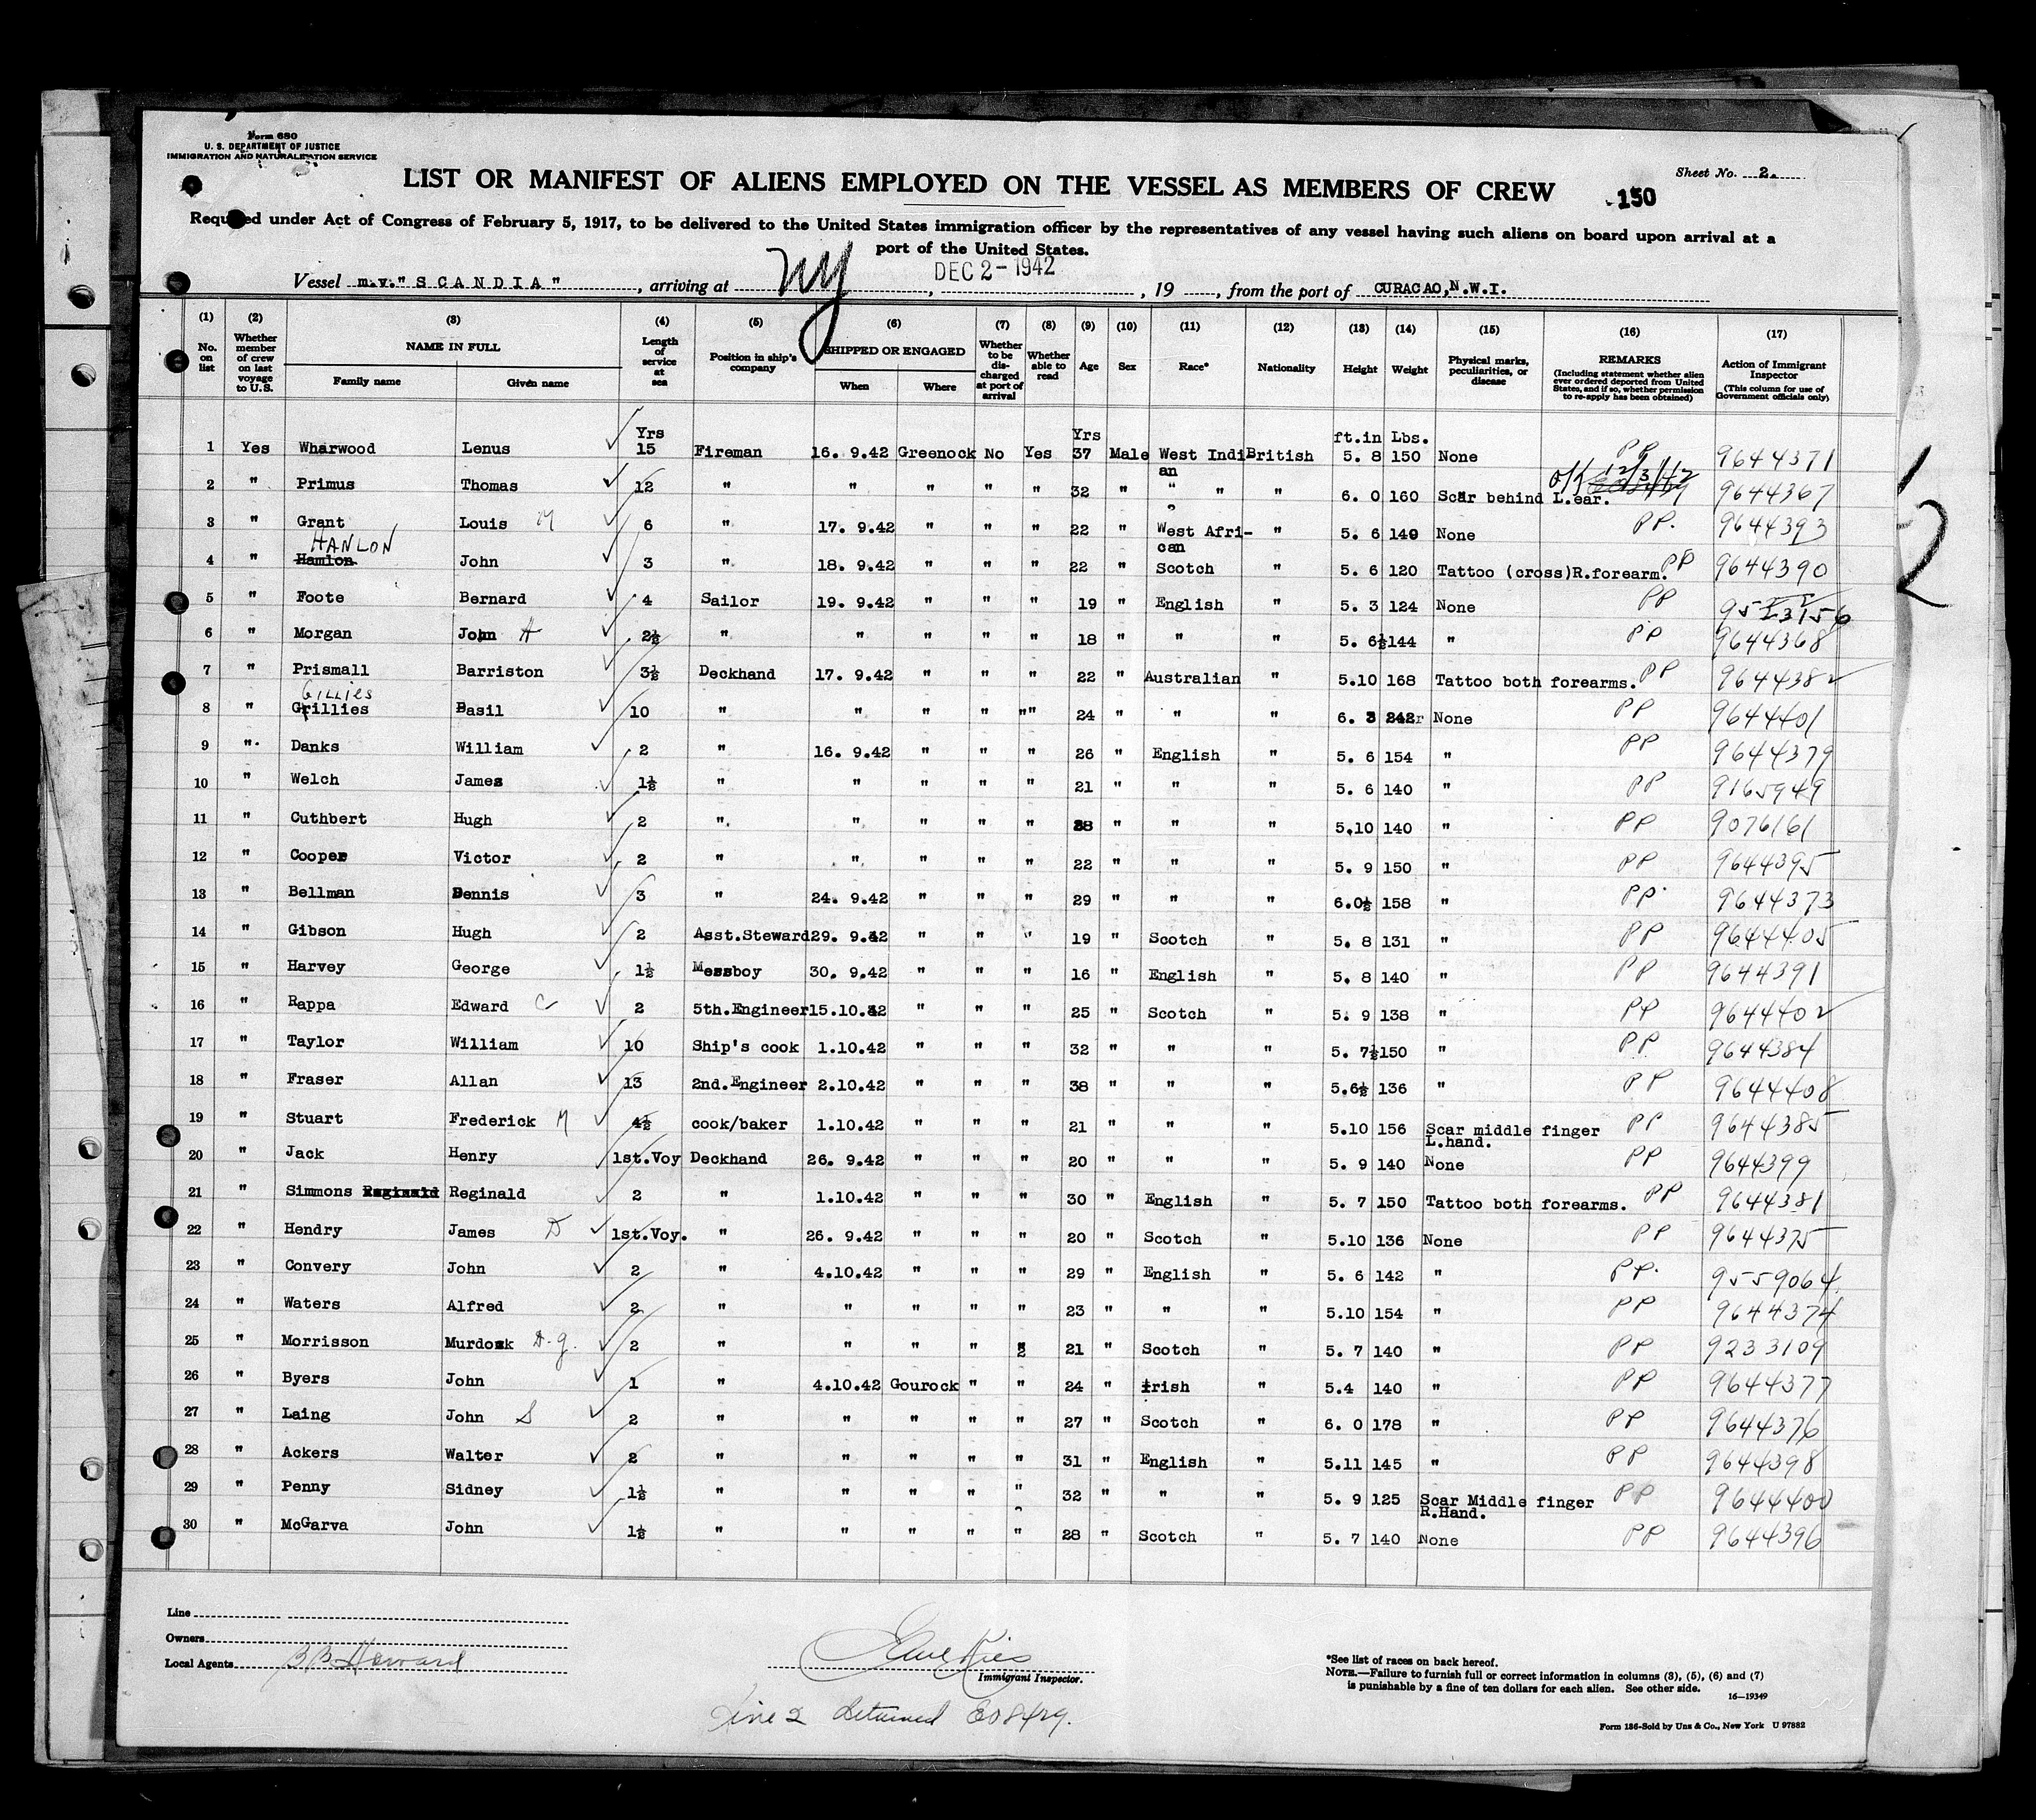 Form 680
U. S. DEPARTMENT OF JUSTICE
IMMIGRATION AND NATURALIZATION SERVICE
Sheet No. 2.
LIST OR MANIFEST OF ALIENS EMPLOYED ON THE VESSEL AS MEMBERS OF CREW
150
Required under Act of Congress of February 5, 1917, to be delivered to the United States immigration officer by the representatives of any vessel having such aliens on board upon arrival at a
port of the United States.
Vessel m.v."SCANDIA", arriving at NY, DEC 2-1942, 19, from the port of CURACAO,N.W.I.
(1) (2) (3) (4) (5) (6) (7) (8) (9) (10) (11) (12) (13) (14) (15) (16) (17)
No. on list | Whether member of crew on last voyage to U.S. | NAME IN FULL Family name Given name | Length of service at sea | Position in ship's company | SHIPPED OR ENGAGED When Where | Whether to be discharged at port of arrival | Whether able to read | Age | Sex | Race* | Nationality | Height | Weight | Physical marks, peculiarities, or disease | REMARKS (Including statement whether alien ever ordered deported from United States, and if so, whether permission to re-apply has been obtained) | Action of Immigrant Inspector (This column for use of Government officials only)
Yrs Yrs ft.in Lbs.
1 Yes Wharwood Lenus 15 Fireman 16. 9.42 Greenock No Yes 37 Male West Indian British 5. 8 150 None PP 9644371
2 " Primus Thomas 12 " " " " " 32 " " " " 6. 0 160 Scar behind L.ear. O/K 12/3/42 9644367
3 " Grant Louis M 6 " 17. 9.42 " " " 22 " West African " 5. 6 140 None PP. 9644393
HANLON
4 " Hamlon John 3 " 18. 9.42 " " " 22 " Scotch " 5. 6 120 Tattoo (cross)R.forearm. PP 9644390
5 " Foote Bernard 4 Sailor 19. 9.42 " " " 19 " English " 5. 3 124 None PP
6 " Morgan John H 2½ " " " " " 18 " " " 5. 6½ 144 " PP 9644368
7 " Prismall Barriston 3½ Deckhand 17. 9.42 " " " 22 " Australian " 5.10 168 Tattoo both forearms. PP 9644382
Gillies
8 " Grillies Basil 10 " " " " "" 24 " " " 6. 3 242 None PP 9644401
9 " Danks William 2 " 16. 9.42 " " " 26 " English " 5. 6 154 " PP 9644379
10 " Welch James 1½ " " " " " 21 " " " 5. 6 140 " PP 9165949
11 " Cuthbert Hugh 2 " " " " " 38 " " " 5.10 140 " PP 9076161
12 " Cooper Victor 2 " " " " " 22 " " " 5. 9 150 " PP 9644395
13 " Bellman Dennis 3 " 24. 9.42 " " " 29 " " " 6.0½ 158 " PP 9644373
14 " Gibson Hugh 2 Asst.Steward 29. 9.42 " " " 19 " Scotch " 5. 8 131 " PP 9644405
15 " Harvey George 1½ Messboy 30. 9.42 " " " 16 " English " 5. 8 140 " PP 9644391
16 " Rappa Edward C 2 5th.Engineer 15.10.42 " " " 25 " Scotch " 5. 9 138 " PP 9644402
17 " Taylor William 10 Ship's cook 1.10.42 " " " 32 " " " 5. 7½ 150 " PP 9644384
18 " Fraser Allan 13 2nd.Engineer 2.10.42 " " " 38 " " " 5.6½ 136 " PP 9644408
19 " Stuart Frederick M 4½ cook/baker 1.10.42 " " " 21 " " " 5.10 156 Scar middle finger L.hand. PP 9644385
20 " Jack Henry 1st.Voy Deckhand 26. 9.42 " " " 20 " " " 5. 9 140 None PP 9644399
21 " Simmons Reginald Reginald 2 " 1.10.42 " " " 30 " English " 5. 7 150 Tattoo both forearms. PP 9644381
22 " Hendry James D 1st.Voy. " 26. 9.42 " " " 20 " Scotch " 5.10 136 None PP 9644375
23 " Convery John 2 " 4.10.42 " " " 29 " English " 5. 6 142 " PP. 9559064
24 " Waters Alfred 2 " " " " " 23 " " " 5.10 154 " PP 9644374
25 " Morrisson Murdock D.G. 2 " " " " " 21 " Scotch " 5. 7 140 " PP 9233109
26 " Byers John 1 " 4.10.42 Gourock " " 24 " Irish " 5.4 140 " PP 9644377
27 " Laing John S 2 " " " " " 27 " Scotch " 6. 0 178 " PP 9644376
28 " Ackers Walter 2 " " " " " 31 " English " 5.11 145 " PP 9644398
29 " Penny Sidney 1½ " " " " " 32 " " " 5. 9 125 Scar Middle finger R.Hand. PP 9644400
30 " McGarva John 1½ " " " " " 28 " Scotch " 5. 7 140 None PP 9644396
12
Line
Owners
Local Agents B B Howard
Immigrant Inspector.
Line 2 detained
*See list of races on back hereof.
NOTE.—Failure to furnish full or correct information in columns (3), (5), (6) and (7)
is punishable by a fine of ten dollars for each alien. See other side.
16—19349
Form 136-Sold by Unz & Co., New York U 97882